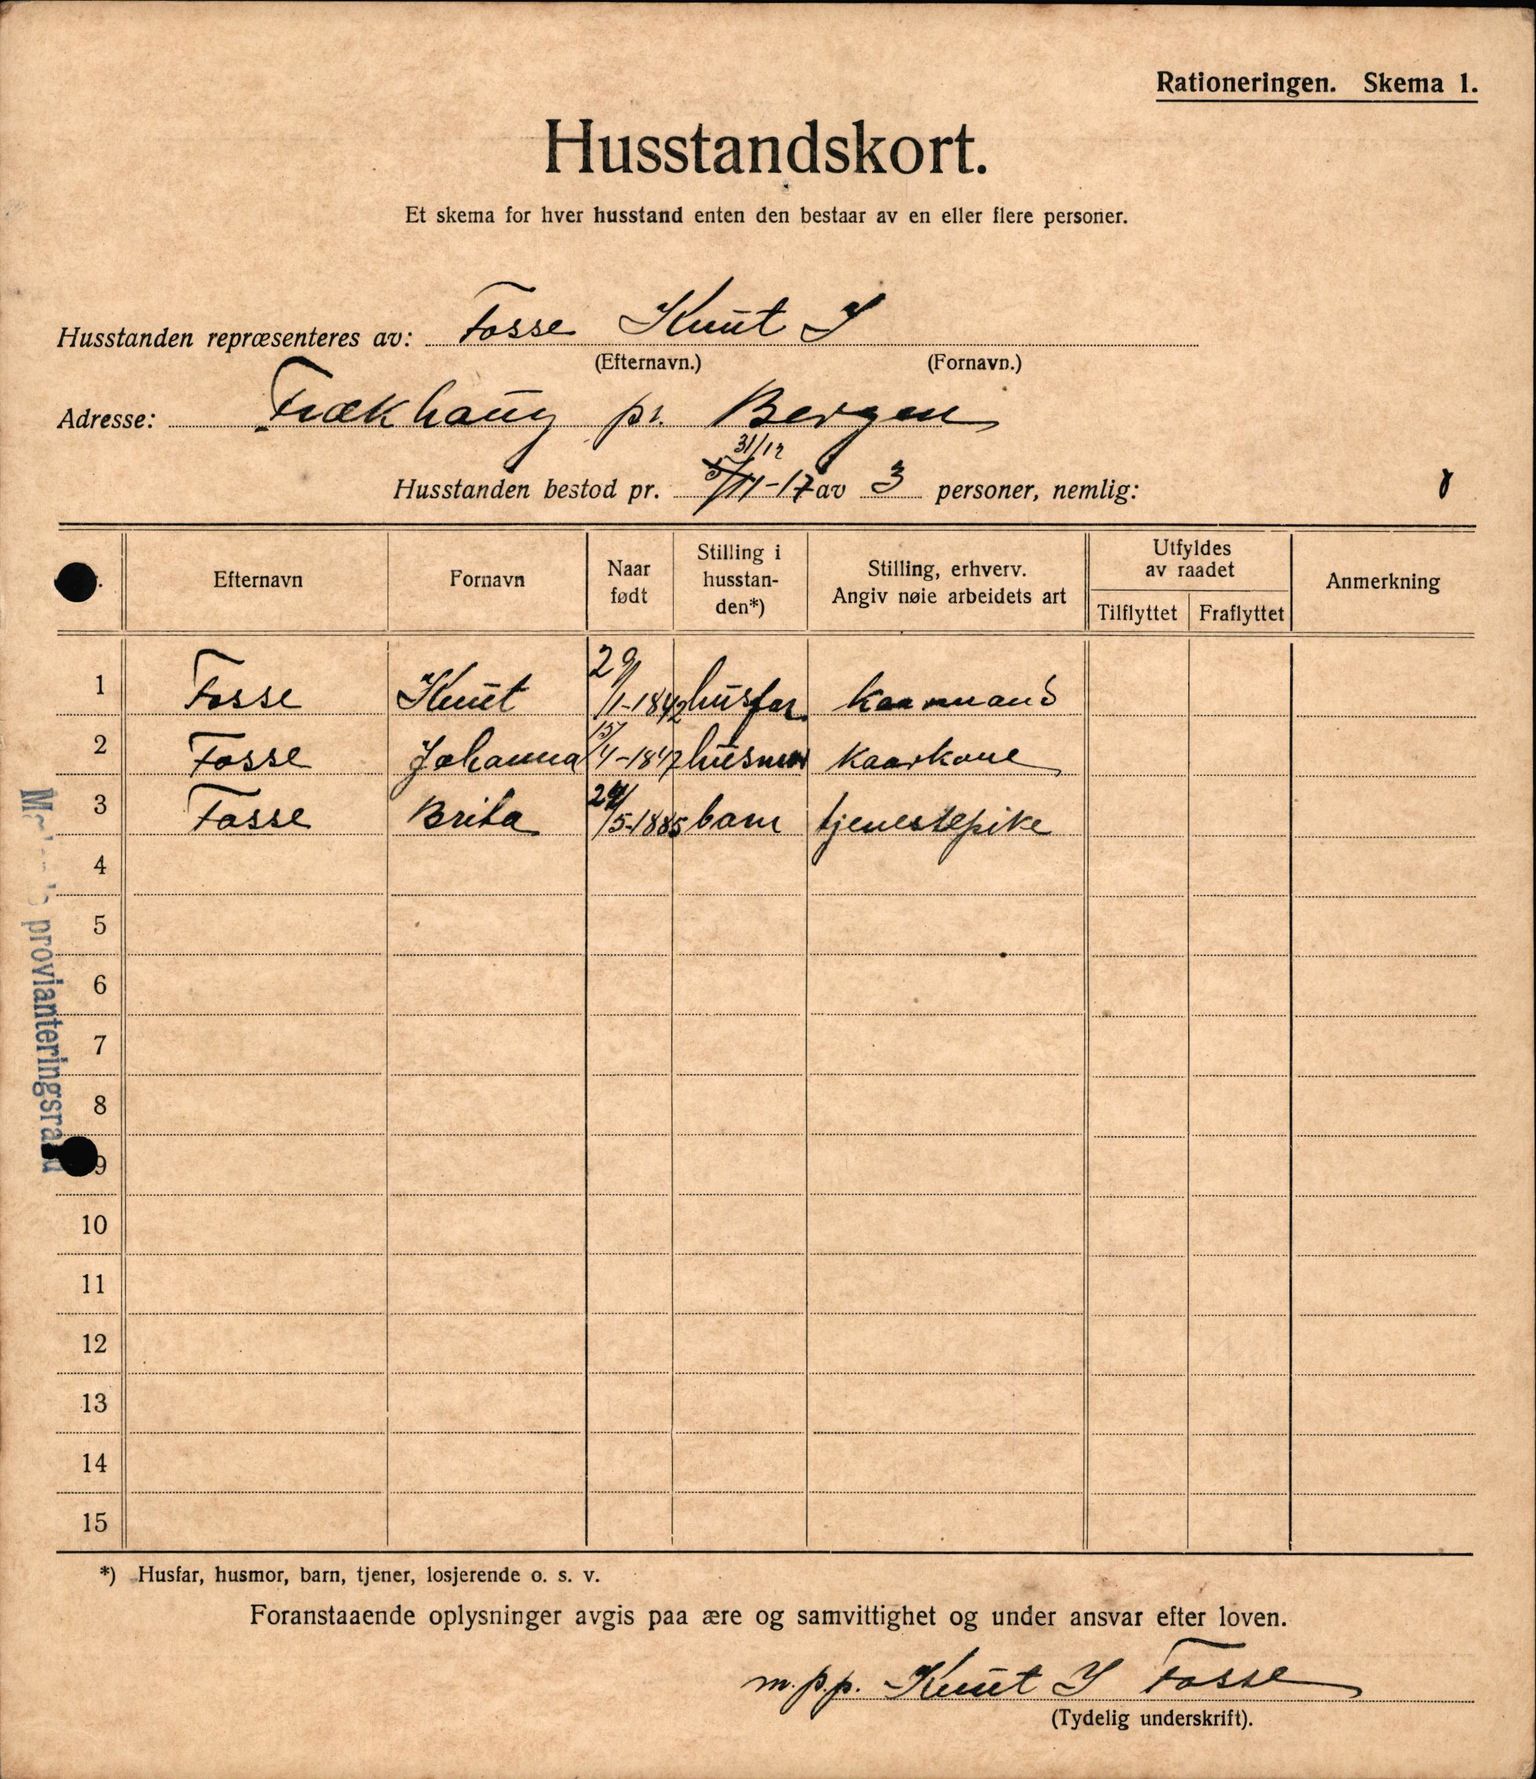 Rationeringen. Skema 1.
Husstandskort.
Et skema for hver husstand enten den bestaar av en eller flere personer.
Husstanden repræsenteres av: Fosse Knut I
(Efternavn.) (Fornavn.)
Adresse: Frækhaug pr. Bergen
31/12
Husstanden bestod pr. 5/11-17 av 3 personer, nemlig:
Efternavn Fornavn Naar født Stilling i husstan-den*) Stilling, erhverv. Angiv nøie arbeidets art Utfyldes av raadet Tilflyttet Fraflyttet Anmerkning
1 Fosse Knut 29/1-1842 husfar kaarmand
2 Fosse Johanna 15/4-1847 husmor kaarkone
3 Fosse Brita /5-1885 barn tjenestepike
4
5
6
7
8
9
10
11
12
13
14
15
provianteringsraad
*) Husfar, husmor, barn, tjener, losjerende o. s. v.
Foranstaaende oplysninger avgis paa ære og samvittighet og under ansvar efter loven.
m.p.p. Knut I Fosse
(Tydelig underskrift).